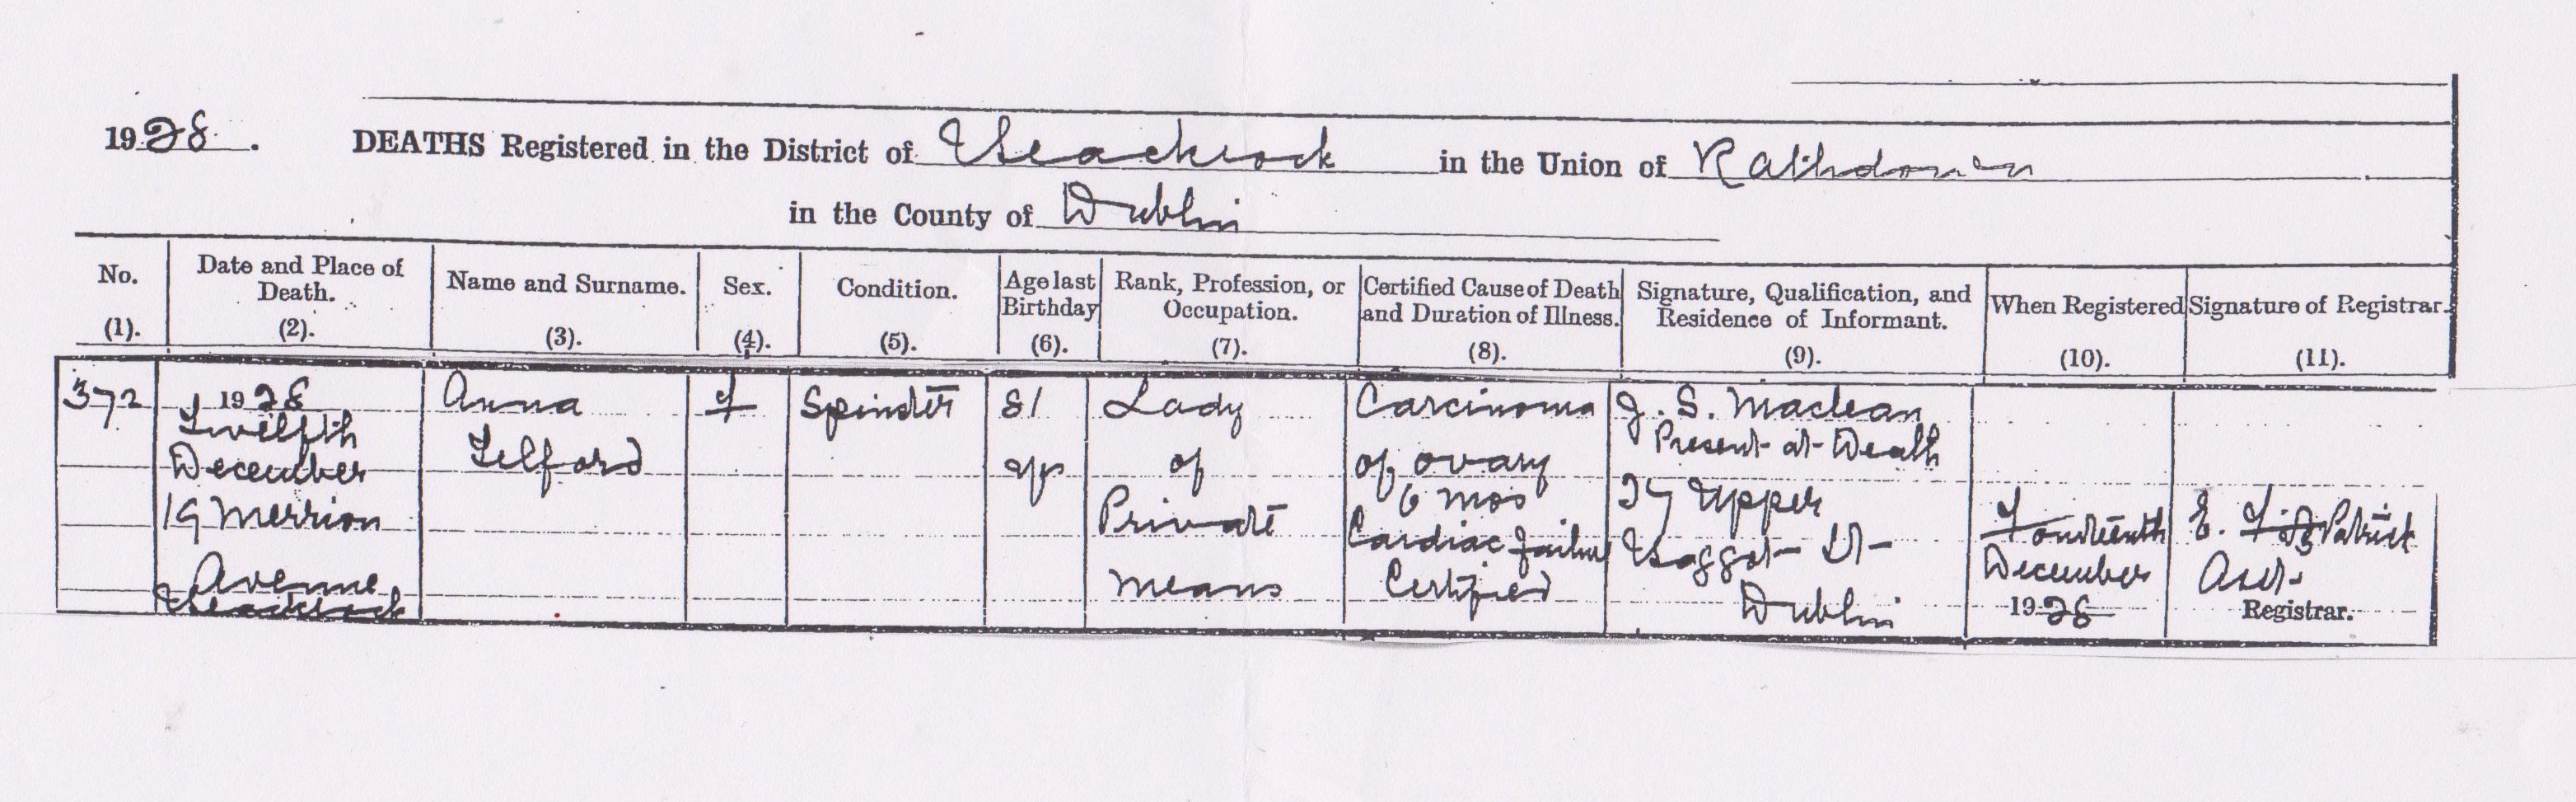 1928. DEATHS Registered in the District of Blackrock in the Union of Rathdown
in the County of Dublin
No.
(1).
Date and Place of
Death.
(2).
Name and Surname.
(3).
Sex.
(4).
Condition.
(5).
Age last
Birthday
(6).
Rank, Profession, or
Occupation.
(7).
Certified Cause of Death
and Duration of Illness.
(8).
Signature, Qualification, and
Residence of Informant.
(9).
When Registered
(10).
Signature of Registrar.
(11).
372
1928
Twelfth
December
19 Merrion
Avenue
Blackrock
Anna
Telford
F
Spinster
81
yrs
Lady
of
Private
means
Carcinoma
of ovary
6 mos
Cardiac failure
Certified
J. S. Maclean
Present at Death
37 Upper
Baggot St
Dublin
Fourteenth
December
1928
E. FitzPatrick
Asst.
Registrar.